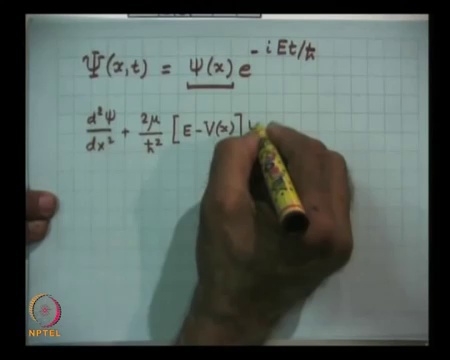 Ψ(x,t) = ψ(x) e^{-iEt/ħ}
d²ψ/dx² + 2μ/ħ² [E-V(x)]
NPTEL